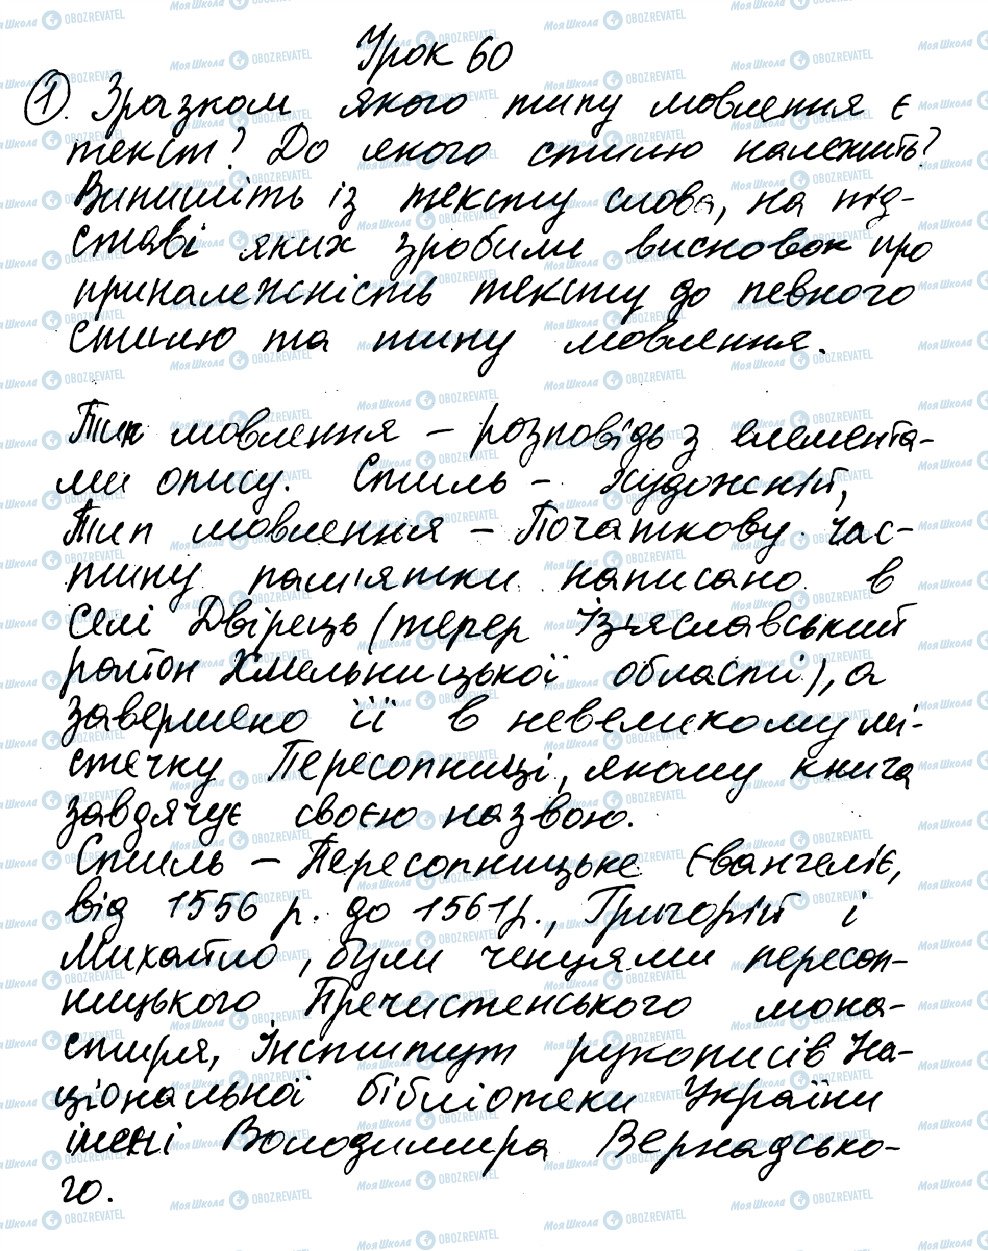 Урок 60
1. Зразком якого типу мовлення є
текст? До якого стилю належить?
Випишіть із тексту слова, на під-
ставі яких зробили висновок про
приналежність тексту до певного
стилю та типу мовлення.
Тип мовлення – розповідь з елемента-
ми опису. Стиль – художній,
Тип мовлення – Початкову час-
тину пам'ятки написано в
селі Двірець (тепер Ізяславський
район Хмельницької області), а
завершено її в невеликому мі-
стечку Пересопниці, якому книга
завдячує своєю назвою.
Стиль – Пересопницьке Євангеліє,
від 1556 р. до 1561р., Григорій і
Михайло, були ченцями пересоп-
ницького Пречистенського мона-
стиря, Інститут рукописів На-
ціональної бібліотеки України
імені Володимира Вернадсько-
го.